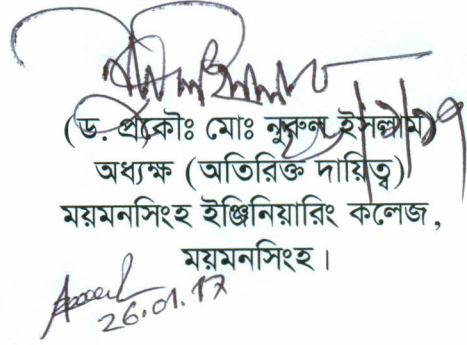 (ড. প্রকৌঃ মোঃ নুরুল ইসলাম)
অধ্যক্ষ (অতিরিক্ত দায়িত্ব)
ময়মনসিংহ ইঞ্জিনিয়ারিং কলেজ,
ময়মনসিংহ।
26.01.17